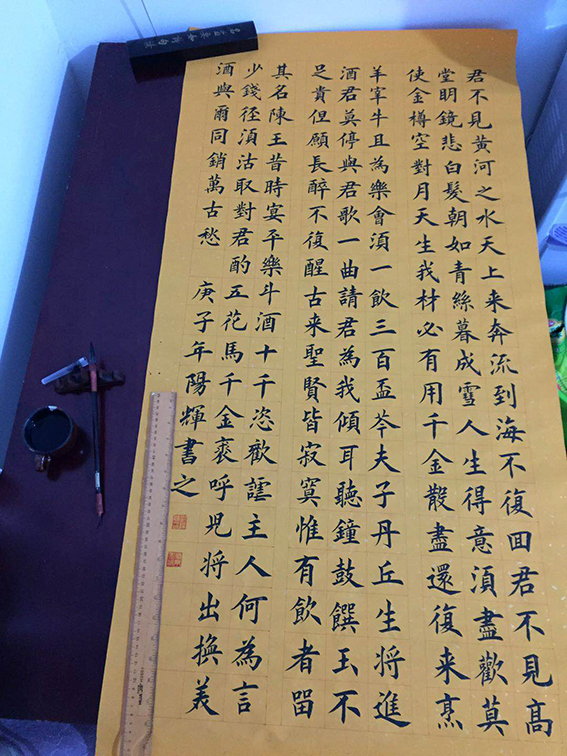 君不見黄河之水天上来奔流到海不復回君不見高
堂明鏡悲白髮朝如青絲暮成雪人生得意湏盡歡莫
使金樽空對月天生我材必有用千金散盡還復来烹
羊宰牛且為樂會湏一飲三百盃岑夫子丹丘生将進
酒君莫停與君歌一曲請君為我傾耳聽鐘鼓饌玉不
足貴但願長醉不復醒古来聖賢皆寂寞惟有飲者留
其名陳王昔時宴平樂斗酒十千恣歡謔主人何為言
少錢径湏沽取對君酌五花馬千金裘呼児将出換美
酒與爾同銷萬古愁 庚子年陽輝書之